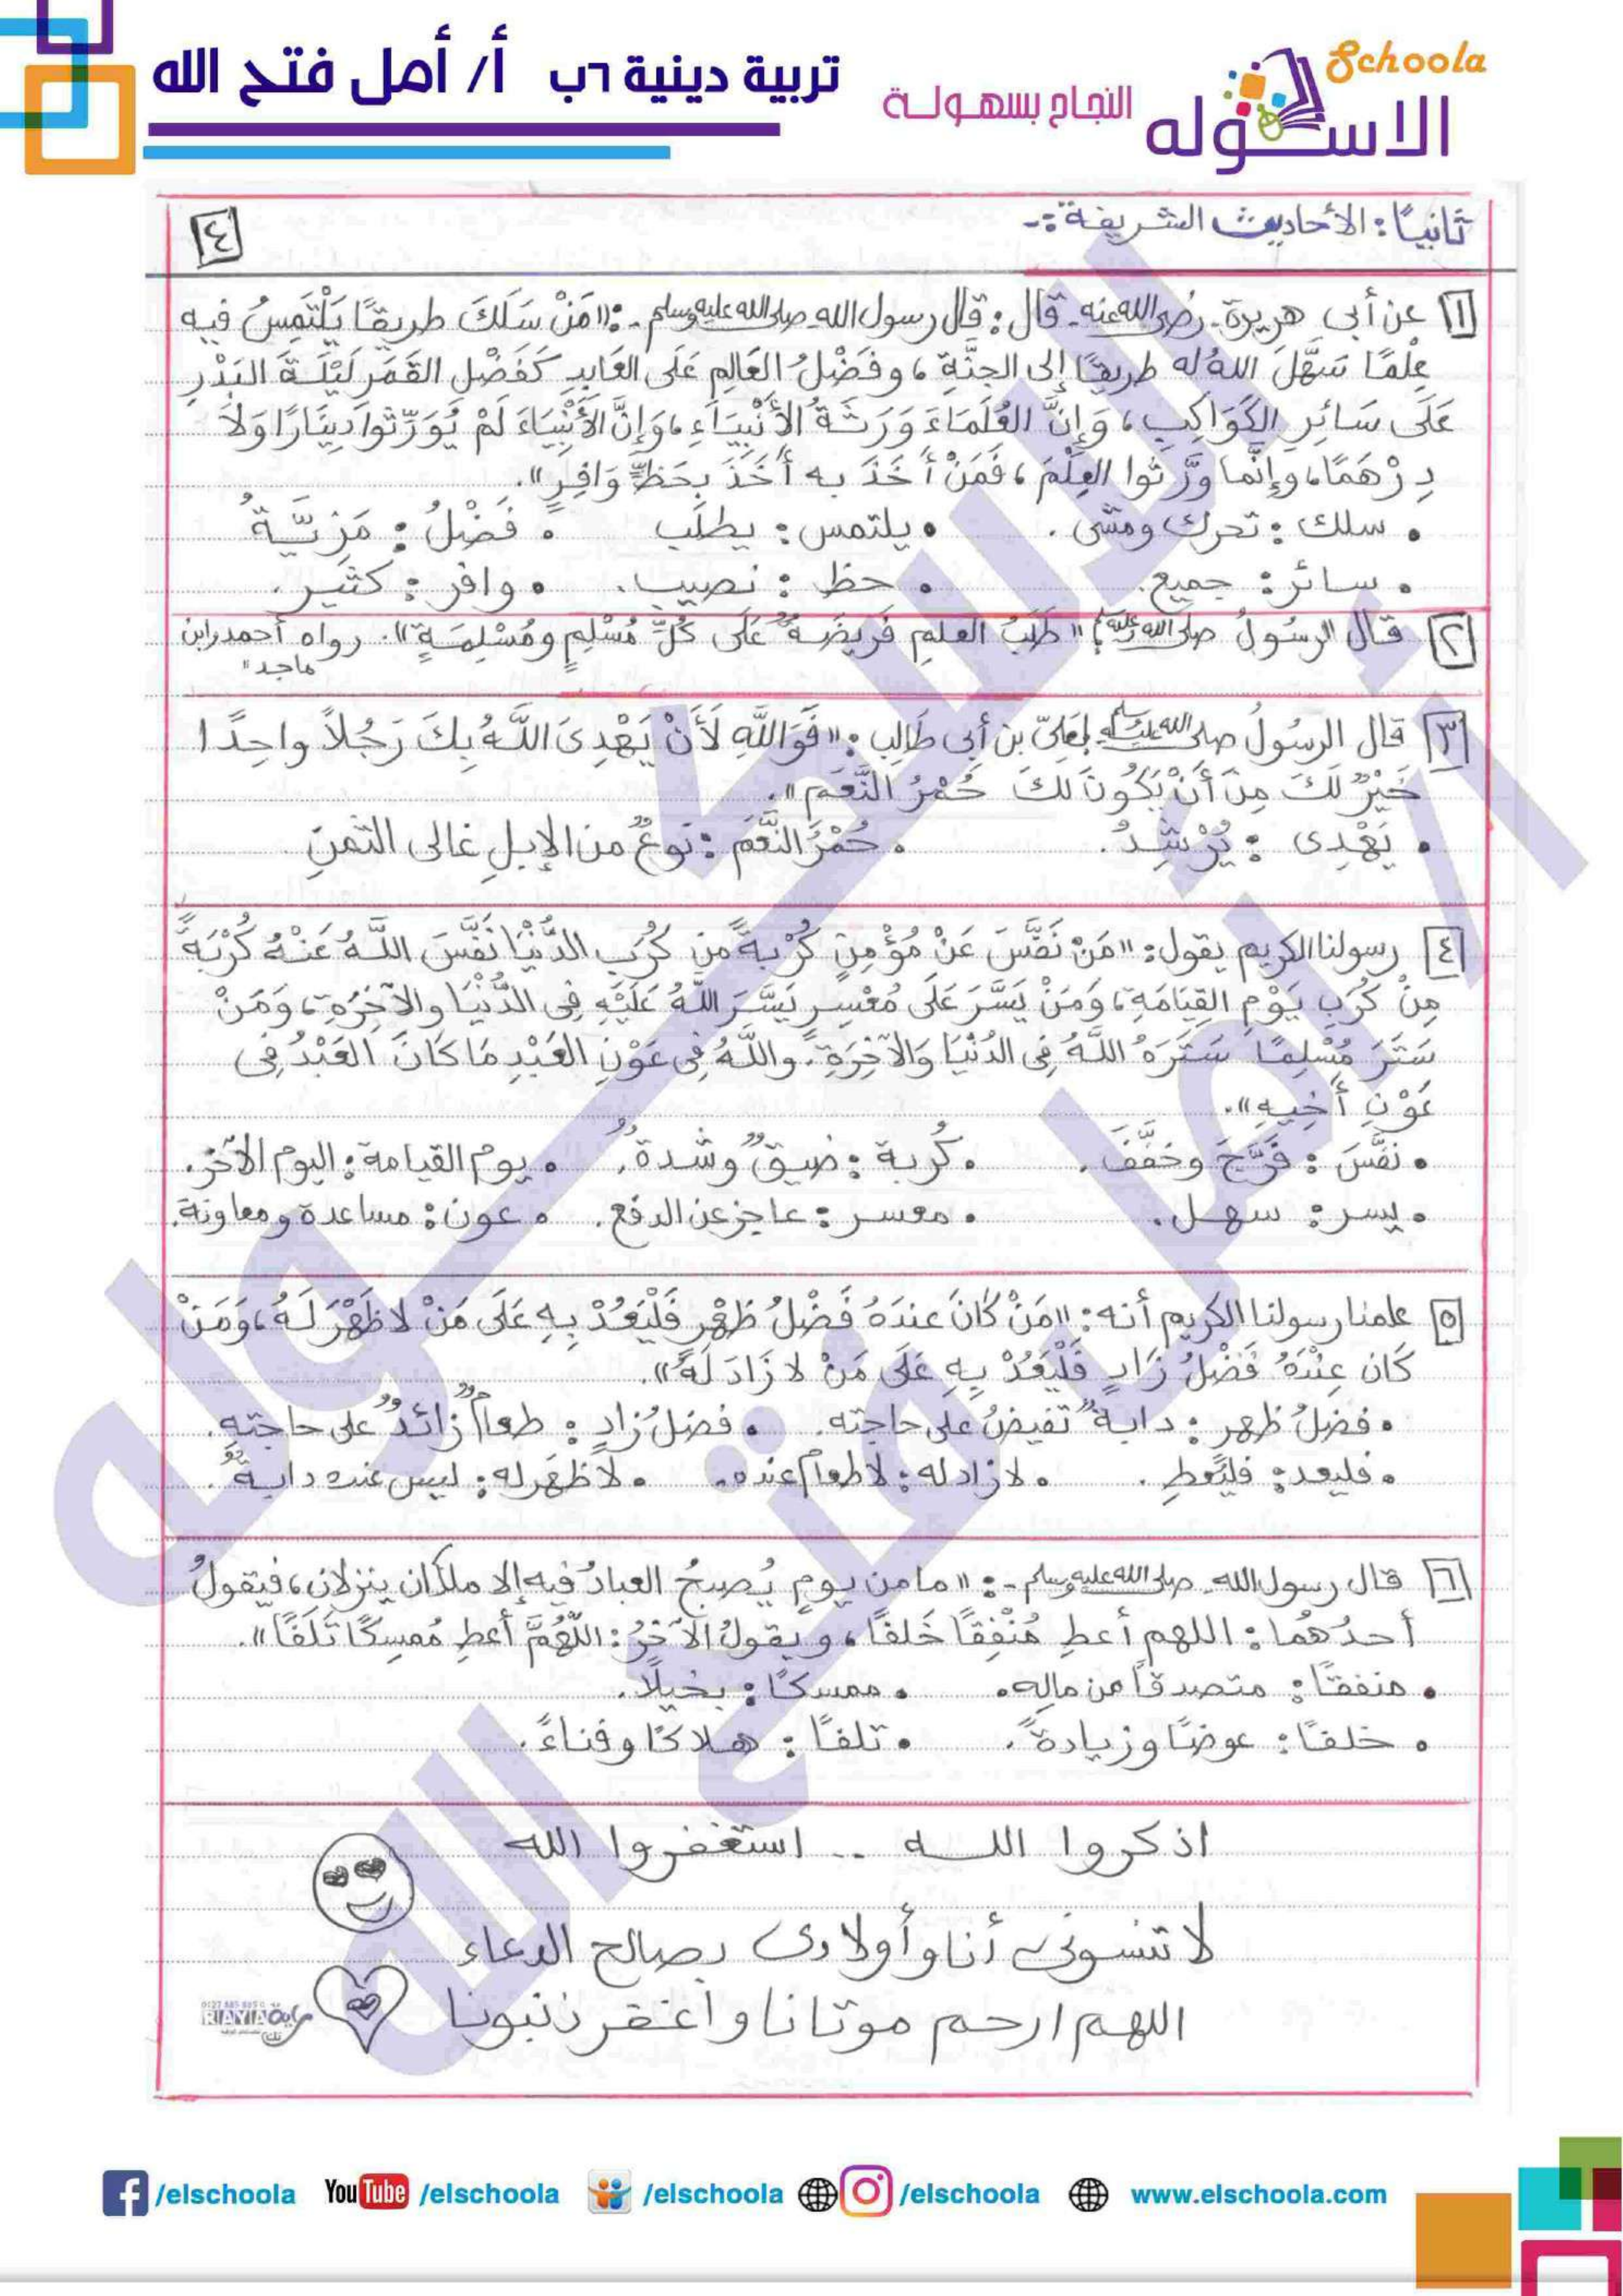 تربية دينية ٦ب أ/ أمل فتح الله
النجاح بسهولة
Schoola
الاسكوله
ثانيًا: الأحاديث الشريفة:-
٤
١ عن أبى هريرة - رضى الله عنه - قال: قال رسول الله - صلى الله عليه وسلم -: «مَنْ سَلَكَ طريقًا يَلْتَمِسُ فيه
عِلْمًا سَهَّلَ اللهُ له طريقًا إلى الجنَّةِ، وفَضْلُ العَالِمِ عَلَى العَابِدِ كَفَضْلِ القَمَرِ لَيْلَةَ البَدْرِ
عَلَى سَائِرِ الكَوَاكِبِ، وَإِنَّ العُلَمَاءَ وَرَثَةُ الأَنْبِيَاءِ، وَإِنَّ الأَنْبِيَاءَ لَمْ يُوَرِّثُوا دِينَارًا وَلَا
دِرْهَمًا، وإِنَّما وَرَّثوا العِلْمَ، فَمَنْ أَخَذَ به أَخَذَ بِحَظٍّ وَافِرٍ».
• سلك: تحرك ومشى. • يلتمس: يطلب • فَضْلُ: مَزِيَّةُ
• سائر: جميع. • حظ: نصيب. • وافر: كثير.
٢ قال الرسولُ صلى الله عليه وسلم: «طَلَبُ العلمِ فَرِيضَةٌ عَلَى كُلِّ مُسْلِمٍ ومُسْلِمَةٍ». رواه أحمد وابن
ماجد"
٣ قال الرسُولُ صلى الله عليه وسلم لِعَلىّ بن أبى طَالِب: «فَوَاللَّهِ لَأَنْ يَهْدِىَ اللَّهُ بِكَ رَجُلاً واحِدًا
خَيْرٌ لَكَ مِنْ أَنْ يَكُونَ لكَ حُمْرُ النَّعَمِ».
• يَهْدِى: يُرْشِدُ. • حُمْرُ النَّعَم: نوعٌ من الإبلِ غالى الثمنِ
٤ رسولنا الكريم يقول: «مَنْ نَفَّسَ عَنْ مُؤْمِنٍ كُرْبةً من كُرَبِ الدُّنْيَا نَفَّسَ اللَّهُ عَنْهُ كُرْبَةً
مِنْ كُرَبِ يَوْمِ القِيَامَةِ، وَمَنْ يَسَّرَ عَلَى مُعْسِرٍ يَسَّرَ اللَّهُ عَلَيْهِ فِى الدُّنْيَا والآخِرَةِ، وَمَنْ
سَتَرَ مُسْلِمًا سَتَرَهُ اللَّهُ فِى الدُّنْيَا وَالآخِرَةِ، واللَّهُ فِى عَوْنِ العَبْدِ مَا كَانَ العَبْدُ فِى
عَوْنِ أَخِيهِ».
• نفَّسَ: فَرَّجَ وخَفَّفَ. • كُربة: ضيقٌ وشدةٌ. • يوم القيامة: اليوم الآخر.
• يسر: سهل. • معسر: عاجز عن الدفع. • عون: مساعدة ومعاونة.
٥ علمنا رسولنا الكريم أنه: «مَنْ كَانَ عندَهُ فَضْلُ ظَهْرٍ فَلْيَعُدْ بِهِ عَلَى مَنْ لا ظَهْرَ لَهُ، وَمَنْ
كَان عِنْدَهُ فَضْلُ زَادٍ فَلْيَعُدْ بِهِ عَلَى مَنْ لا زَادَ لَهُ».
• فضلُ ظهر: دابةٌ تفيضُ على حاجته. • فضلُ زادٍ: طعامٌ زائدٌ على حاجتِهِ.
• فليعد: فليُعطِ. • لا زاد له: لا طعامَ عنده. • لا ظَهر له: ليس عنده دابةٌ.
٦ قال رسول الله - صلى الله عليه وسلم -: «ما من يومٍ يُصبحُ العبادُ فيه إلا ملكان ينزلان، فيقولُ
أحدُهُما: اللهم أعطِ مُنْفِقًا خَلفًا، ويقولُ الآخَرُ: اللَّهُمَّ أعطِ مُمسِكًا تَلَفًا».
• منفقًا: متصدقًا من مالِه. • ممسكًا: بخيلًا.
• خلفًا: عوضًا وزيادةً. • تلفًا: هلاكًا وفناءً.
اذكروا الله .. استغفروا الله
لا تنسونى أنا وأولادى بصالح الدعاء
اللهم ارحم موتانا واغفر ذنبونا
RAYA
/elschoola YouTube /elschoola /elschoola /elschoola www.elschoola.com
الاسكوله
أ/ أمل فتح الله